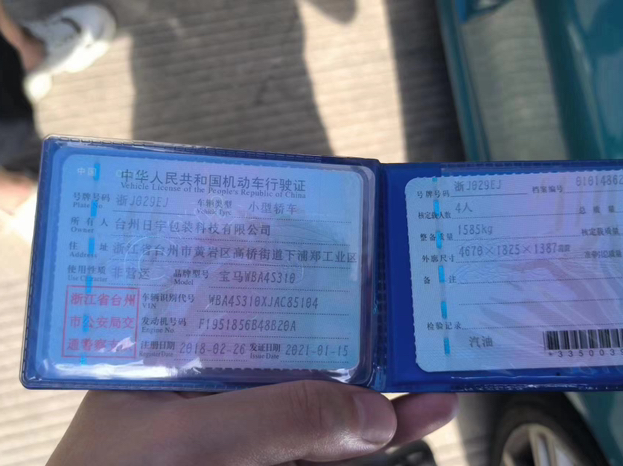 中国
中华人民共和国机动车行驶证
Vehicle License of the People's Republic of China
号牌号码 浙J029EJ 车辆类型 小型轿车
Plate No. Vehicle Type
所有人 台州日宇包装科技有限公司
Owner
住址 浙江省台州市黄岩区高桥街道下浦郑工业区
Address
使用性质 非营运 品牌型号 宝马WBA4S310
Use Character Model
浙江省台州
市公安局交
车辆识别代号 WBA4S310XJAC85104
VIN
发动机号码
Engine No.
注册日期 2018-02-26 发证日期 2021-01-15
Register Date Issue Date
号牌号码 浙J029EJ 档案编号
核定载人数 4人 总质量
整备质量 1585kg 核定载质量
外廓尺寸
备注
检验记录
汽油